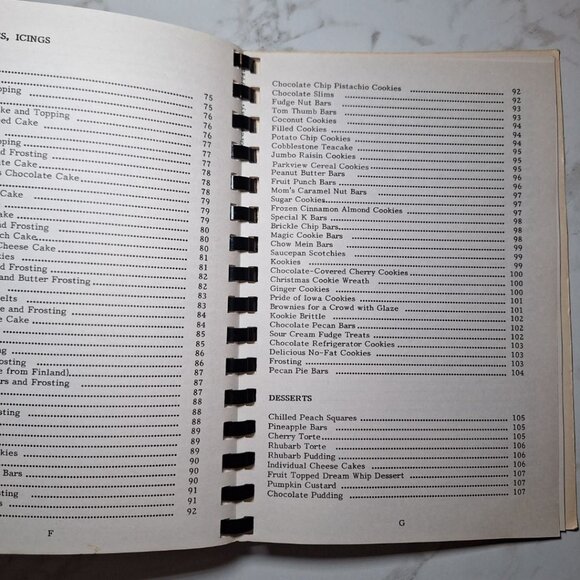 TS, ICINGS
75
pping
75
76
ke and Topping
76
ed Cake
76
77
and Frosting
77
ite Cake
78
s Chocolate Cake
78
79
Cake
79
ake
80
and Frosting
80
ch Cake
80
Cheese Cake
81
kies
81
d Frosting
82
and Butter Frosting
82
83
elts
83
e and Frosting
84
e Cake
84
85
85
ing
86
osting
86
e from Finland)
87
ars and Frosting
87
88
osting
88
89
89
okies
90
90
Bars
91
osting
91
s
92
F
Chocolate Chip Pistachio Cookies 92
Chocolate Slims 92
Fudge Nut Bars 93
Tom Thumb Bars 93
Coconut Cookies 94
Filled Cookies 94
Potato Chip Cookies 94
Cobblestone Teacake 95
Jumbo Raisin Cookies 95
Parkview Cereal Cookies 95
Peanut Butter Bars 96
Fruit Punch Bars 96
Mom's Caramel Nut Bars 96
Sugar Cookies 97
Frozen Cinnamon Almond Cookies 97
Special K Bars 98
Brickle Chip Bars 98
Magic Cookie Bars 98
Chow Mein Bars 99
Saucepan Scotchies 99
Kookies 99
Chocolate-Covered Cherry Cookies 100
Christmas Cookie Wreath 100
Ginger Cookies 100
Pride of Iowa Cookies 101
Brownies for a Crowd with Glaze 101
Kookie Brittle 102
Chocolate Pecan Bars 102
Sour Cream Fudge Treats 102
Chocolate Refrigerator Cookies 103
Delicious No-Fat Cookies 103
Frosting 103
Pecan Pie Bars 104
DESSERTS
Chilled Peach Squares 105
Pineapple Bars 105
Cherry Torte 105
Rhubarb Torte 106
Rhubarb Pudding 106
Individual Cheese Cakes 106
Fruit Topped Dream Whip Dessert 107
Pumpkin Custard 107
Chocolate Pudding 107
G